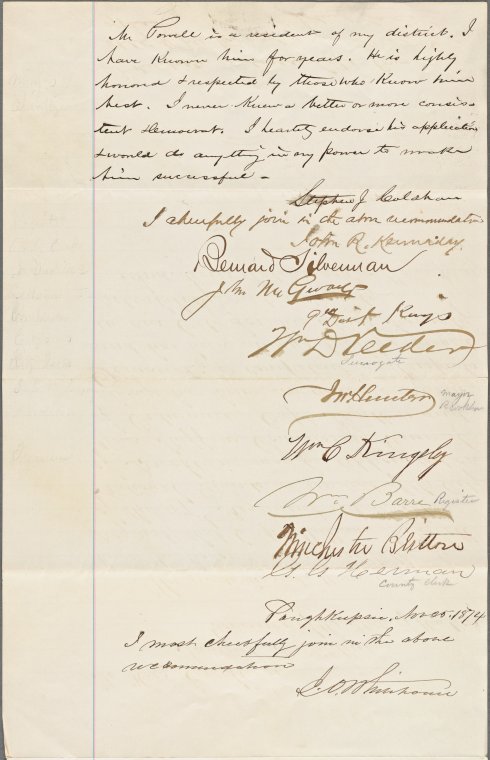 Mr Powell is a resident of my district. I
have known him for years. He is highly
honored & respected by those who know him
best. I never knew a better or more consis-
tent Democrat. I heartly endorse his application
& would do anything in my power to make
him successful -
Stephen J. Colahan
I cheerfully join in the above recommendation
John R. Kennaday.
Bernard Silverman
John Mc
9th Dist Kings
Wm D Veeder
Surrogate
Jno Hunter
Mayor
Brooklyn
Wm C Kingsley
Wm Barre Register
Winchester Britton
G. G Herman
County Clerk
Poughkeepsie, Nov 25. 1874
I most cheerfully join in the above
recommendation
J. O. Whitehouse